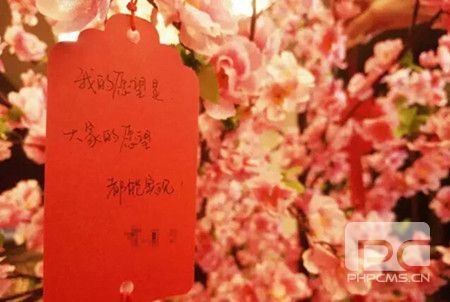 我的愿望是
大家的愿望
都能实现！
PC
PHPCMS.CN